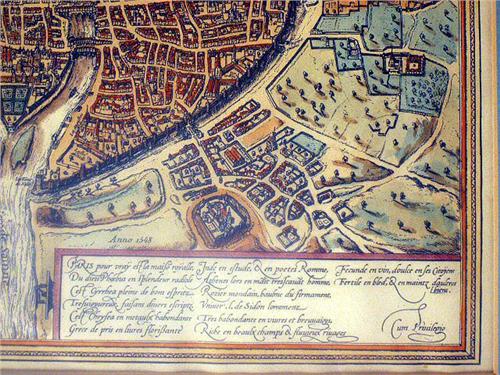 Anno 1548
PARIS pour vray est la maison royalle,
Du dieu Phœbus en splendeur radiale
C'est Cyrrhea pleine de bons esprits
Tresvigoureux, faisans divers escripts.
C'est Chrysea en metaulx habondante
Grece de pris en livres florissante
Inde en estude, & en poetes Romme,
Athenes lors en maint tresscavãt homme,
Rosier mondain, baulme du firmament,
Univer. de Sidon l'ornement.
Tres habondante en vivres et breuvaiges,
Riche en beaulx champs & fluvieux rivages
Fecunde en vin, doulce en ses Citoyens
Fertile en bled, & en maintz aultres biens.
Cum Privilegio